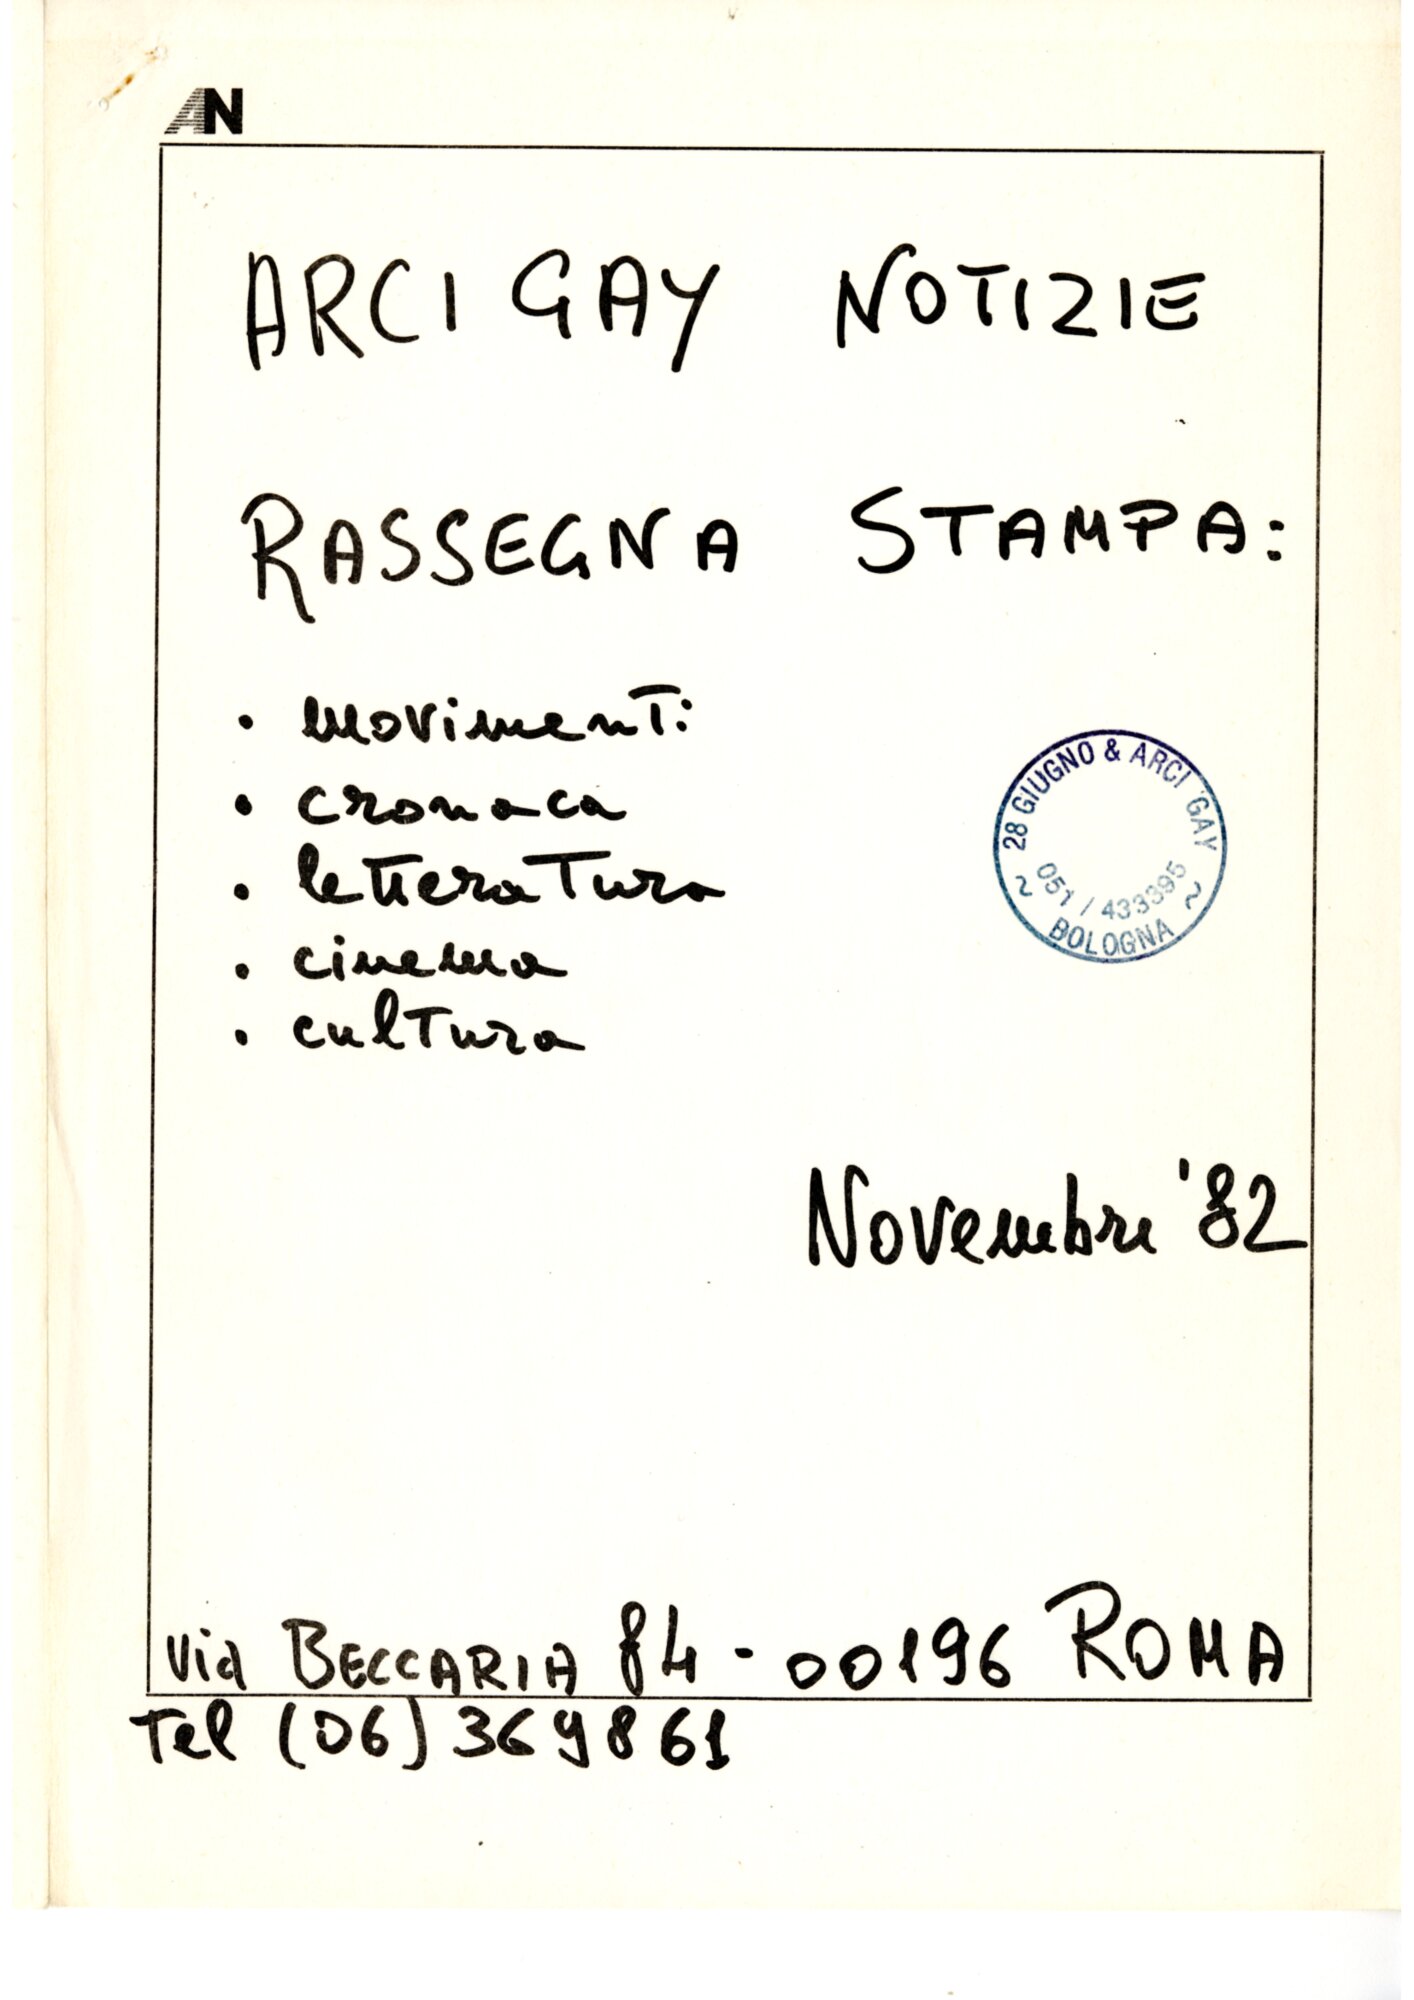 AN
ARCI GAY NOTIZIE
RASSEGNA STAMPA:
• movimenti
• cronaca
• letteratura
• cinema
• cultura
28 GIUGNO & ARCI GAY
051 / 433395
~ BOLOGNA ~
Novembre '82
Via BECCARIA 84 - 00196 ROMA
Tel (06) 369861